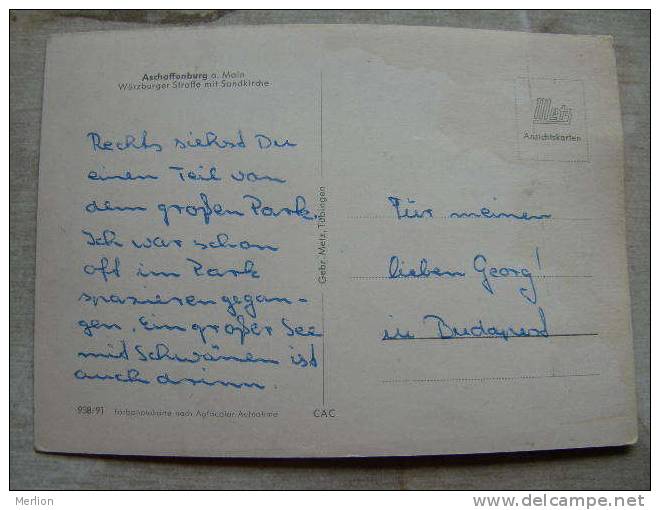 Aschaffenburg a. Main
Würzburger Straße mit Sandkirche
Rechts siehst Du
einen Teil von
dem großen Park.
Ich war schon
oft im Park
spazierengegan-
gen. Ein großer See
mit Schwänen ist
auch drinn.
938/91 Farbanoskarte nach Agfacolor-Aufnahme
CAC
Gebr. Metz, Tübingen
Metz
Ansichtskarten
Für meinen
lieben Georg!
in Budapest
Merlion
www.delcampe.net